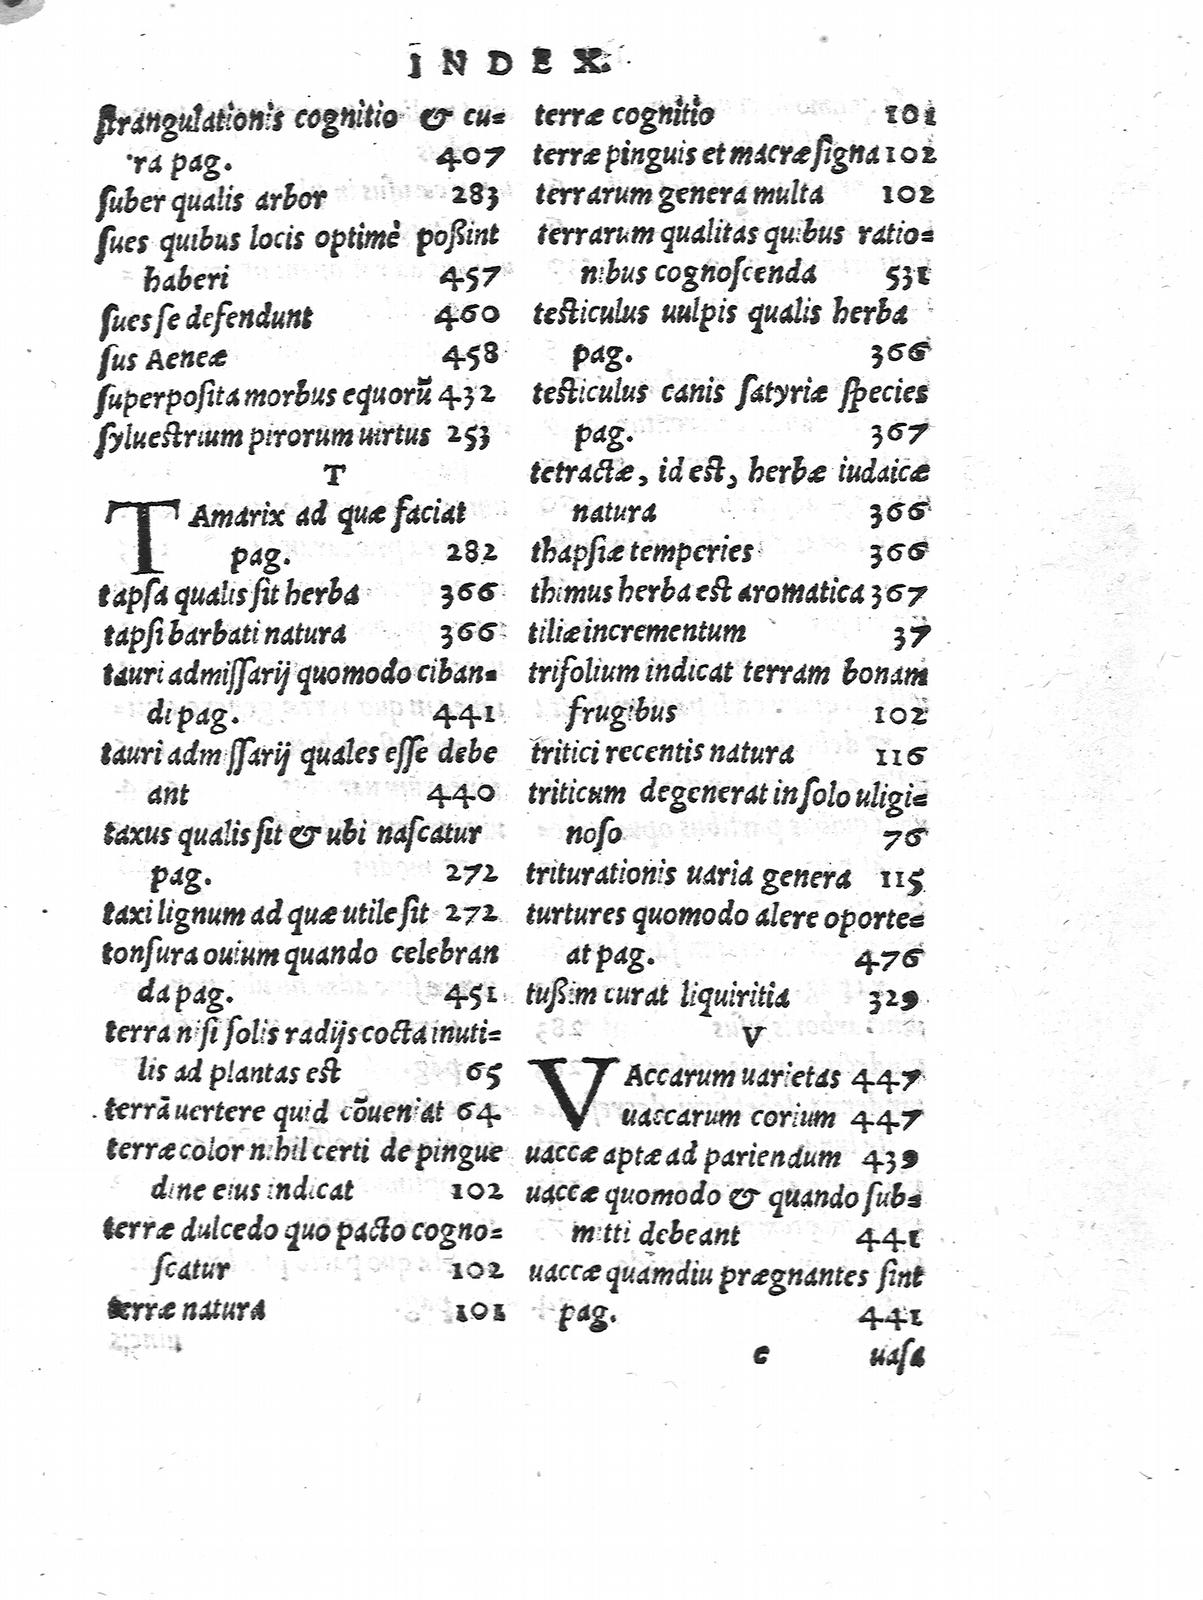 INDEX.
ſtrangulationis cognitio & cu=
ra pag. 407
ſuber qualis arbor 283
ſues quibus locis optimè poßint
haberi 457
ſues ſe defendunt 460
ſus Aeneæ 458
ſuperpoſita morbus equorũ 432
ſylueſtrium pirorum uirtus 253
T
TAmarix ad quæ faciat
pag. 282
tapſa qualis ſit herba 366
tapſi barbati natura 366
tauri admiſſarij quomodo ciban=
di pag. 441
tauri admiſſarij quales eſſe debe
ant 440
taxus qualis ſit & ubi naſcatur
pag. 272
taxi lignum ad quæ utile ſit 272
tonſura ouium quando celebran
da pag. 451
terra niſi ſolis radijs cocta inuti=
lis ad plantas eſt 65
terrã uertere quid cõueniat 64
terræ color nihil certi de pingue
dine eius indicat 102
terræ dulcedo quo pacto cogno=
ſcatur 102
terræ natura 101
terræ cognitio 101
terræ pinguis et macræ ſigna 102
terrarum genera multa 102
terrarum qualitas quibus ratio=
nibus cognoſcenda 531
teſticulus uulpis qualis herba
pag. 366
teſticulus canis ſatyriæ ſpecies
pag. 367
tetractæ, id eſt, herbæ iudaicæ
natura 366
thapſiæ temperies 366
thimus herba eſt aromatica 367
tiliæ incrementum 37
trifolium indicat terram bonam
frugibus 102
tritici recentis natura 116
triticum degenerat in ſolo uligi=
noſo 76
triturationis uaria genera 115
turtures quomodo alere oporte=
at pag. 476
tußim curat liquiritia 329
V
VAccarum uarietas 447
uaccarum corium 447
uaccæ aptæ ad pariendum 439
uaccæ quomodo & quando ſub=
mitti debeant 441
uaccæ quamdiu prægnantes ſint
pag. 441
e uaſa